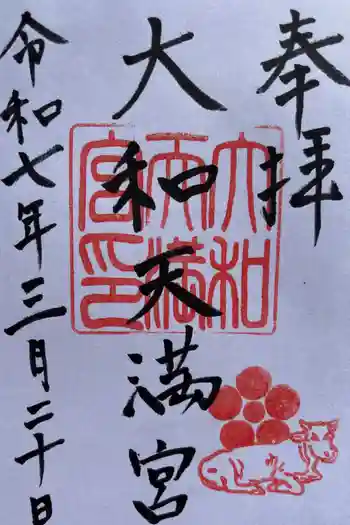 奉拝
大和天満宮
大和天満宮印
令和七年三月二十日